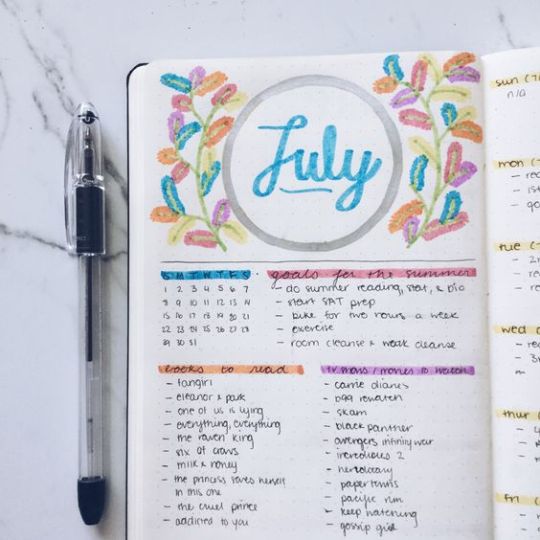 July
S M T W T F S
1 2 3 4 5 6 7
8 9 10 11 12 13 14
15 16 17 18 19 20 21
22 23 24 25 26 27 28
29 30 31
goals for the summer
- do summer reading, stat, & bio
- start SAT prep
- bike for two hours a week
- exercise
- room cleanse & weak cleanse
books to read
- fangirl
- eleanor & park
- one of us is lying
- everything, everything
- the raven king
- six of crows
- milk & honey
- the princess saves herself
in this one
- the cruel prince
- addicted to you
tv shows / movies to watch
- carrie diaries
- b99 rewatch
- skam
- black panther
- avengers infinity war
- incredibles 2
- hereditary
- paper towns
- pacific rim
- keep watching
- gossip girl
sun (
n/a
mon (
- 
tue (
wed
thur (
fri (